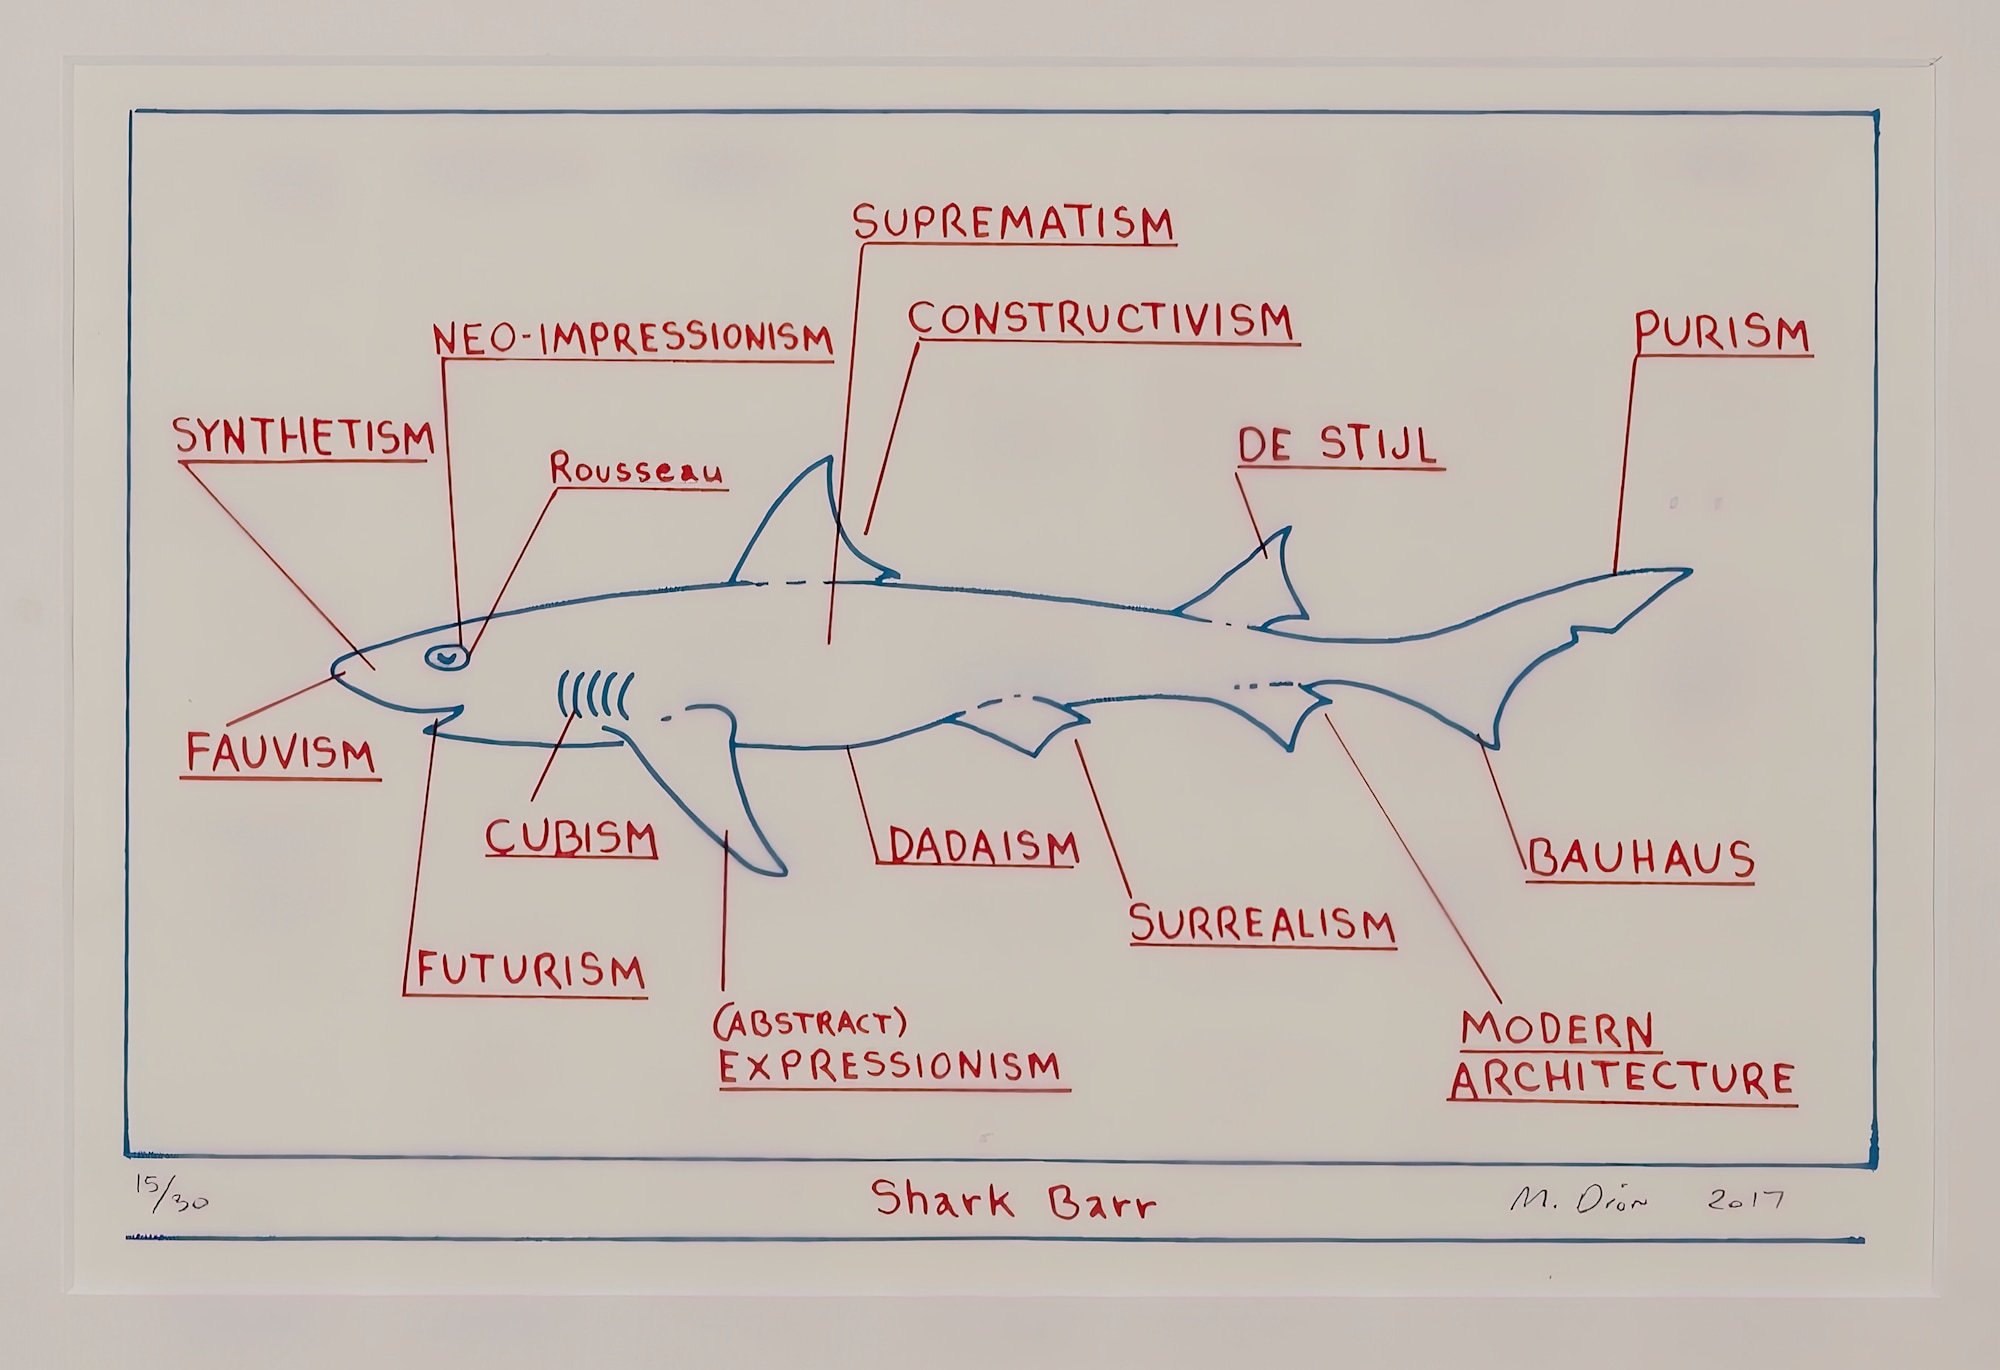 SUPREMATISM
CONSTRUCTIVISM
NEO-IMPRESSIONISM
PURISM
SYNTHETISM
Rousseau
DE STIJL
FAUVISM
CUBISM
DADAISM
BAUHAUS
SURREALISM
FUTURISM
(ABSTRACT)
EXPRESSIONISM
MODERN
ARCHITECTURE
15/30
Shark Barr
M. Dion 2017